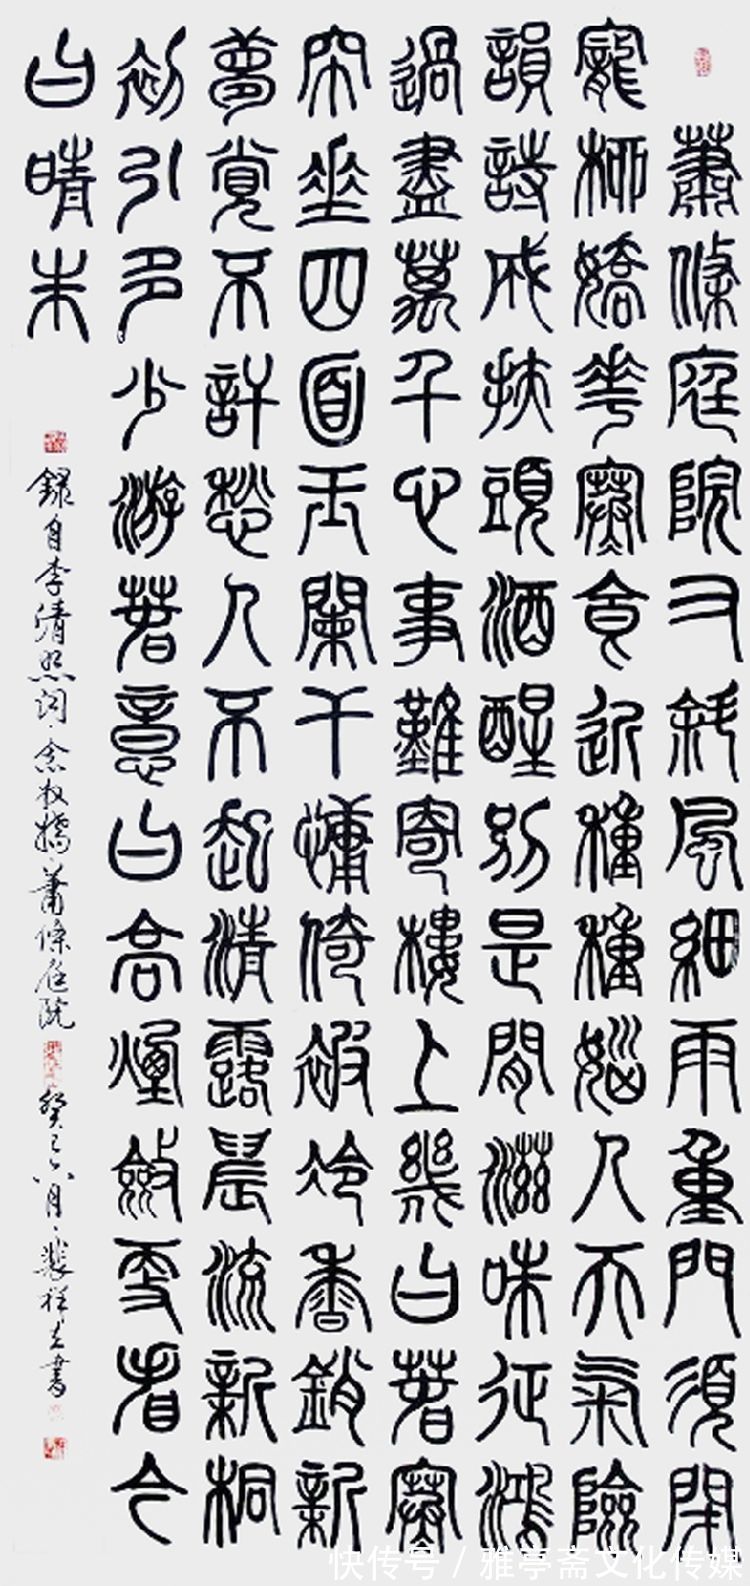 蕭條庭院又斜風細雨重門須閉
寵柳嬌花寒食近種種惱人天氣險
韻詩成扶頭酒醒別是閒滋味征鴻
過盡萬千心事難寄樓上幾日春寒
帘垂四面玉闌干慵倚被冷香銷新
夢覺不許愁人不起清露晨流新桐
初引多少游春意日高煙斂更看今
日晴未
錄自李清照词·念奴嬌·蕭條庭院 癸巳 月·裴祥 書
快传号 / 雅亭斋文化传媒